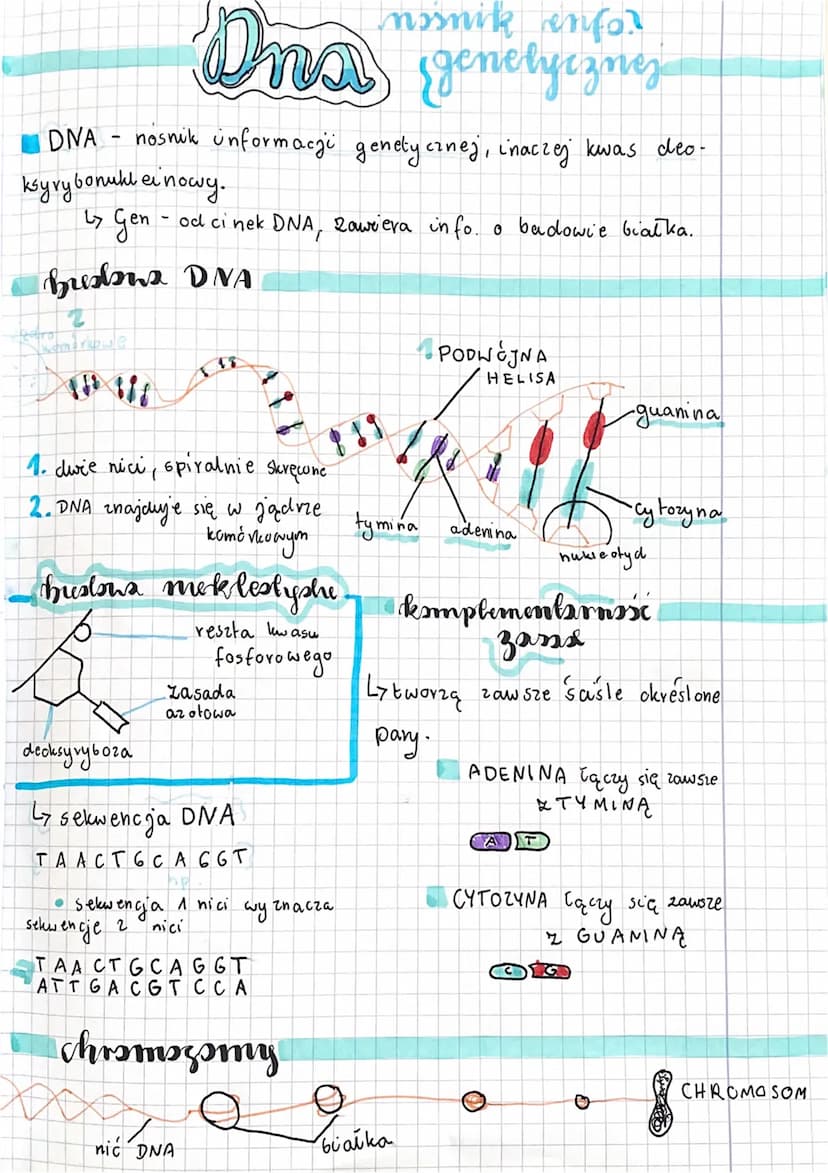 Dna
nośnik info.
genetycznej
DNA - nośnik informacji genetycznej, inaczej kwas deo-
ksyrybonukleinowy.
↳ Gen - odcinek DNA, zawiera info. o budowie białka.
budowa DNA
2
jądro
komórkowe
1 PODWÓJNA
HELISA
guanina
1. dwie nici, spiralnie skręcone
2. DNA znajduje się w jądrze
komórkowym
tymina
adenina
cytozyna
nukleotyd
budowa nukleotydu
reszta kwasu
fosforowego
zasada
azotowa
deoksyryboza
komplementarność
zasad
↳ tworzą zawsze ściśle określone
pary.
ADENINA łączy się zawsze
z TYMINĄ
A T
CYTOZYNA łączy się zawsze
z GUANINĄ
C G
↳ sekwencja DNA
TAACTGCAGGT
np.
• sekwencja 1 nici wyznacza
sekwencję 2 nici
TAACTGCAGGT
ATTGACGTCCA
chromosomy
nić DNA
białka
CHROMOSOM